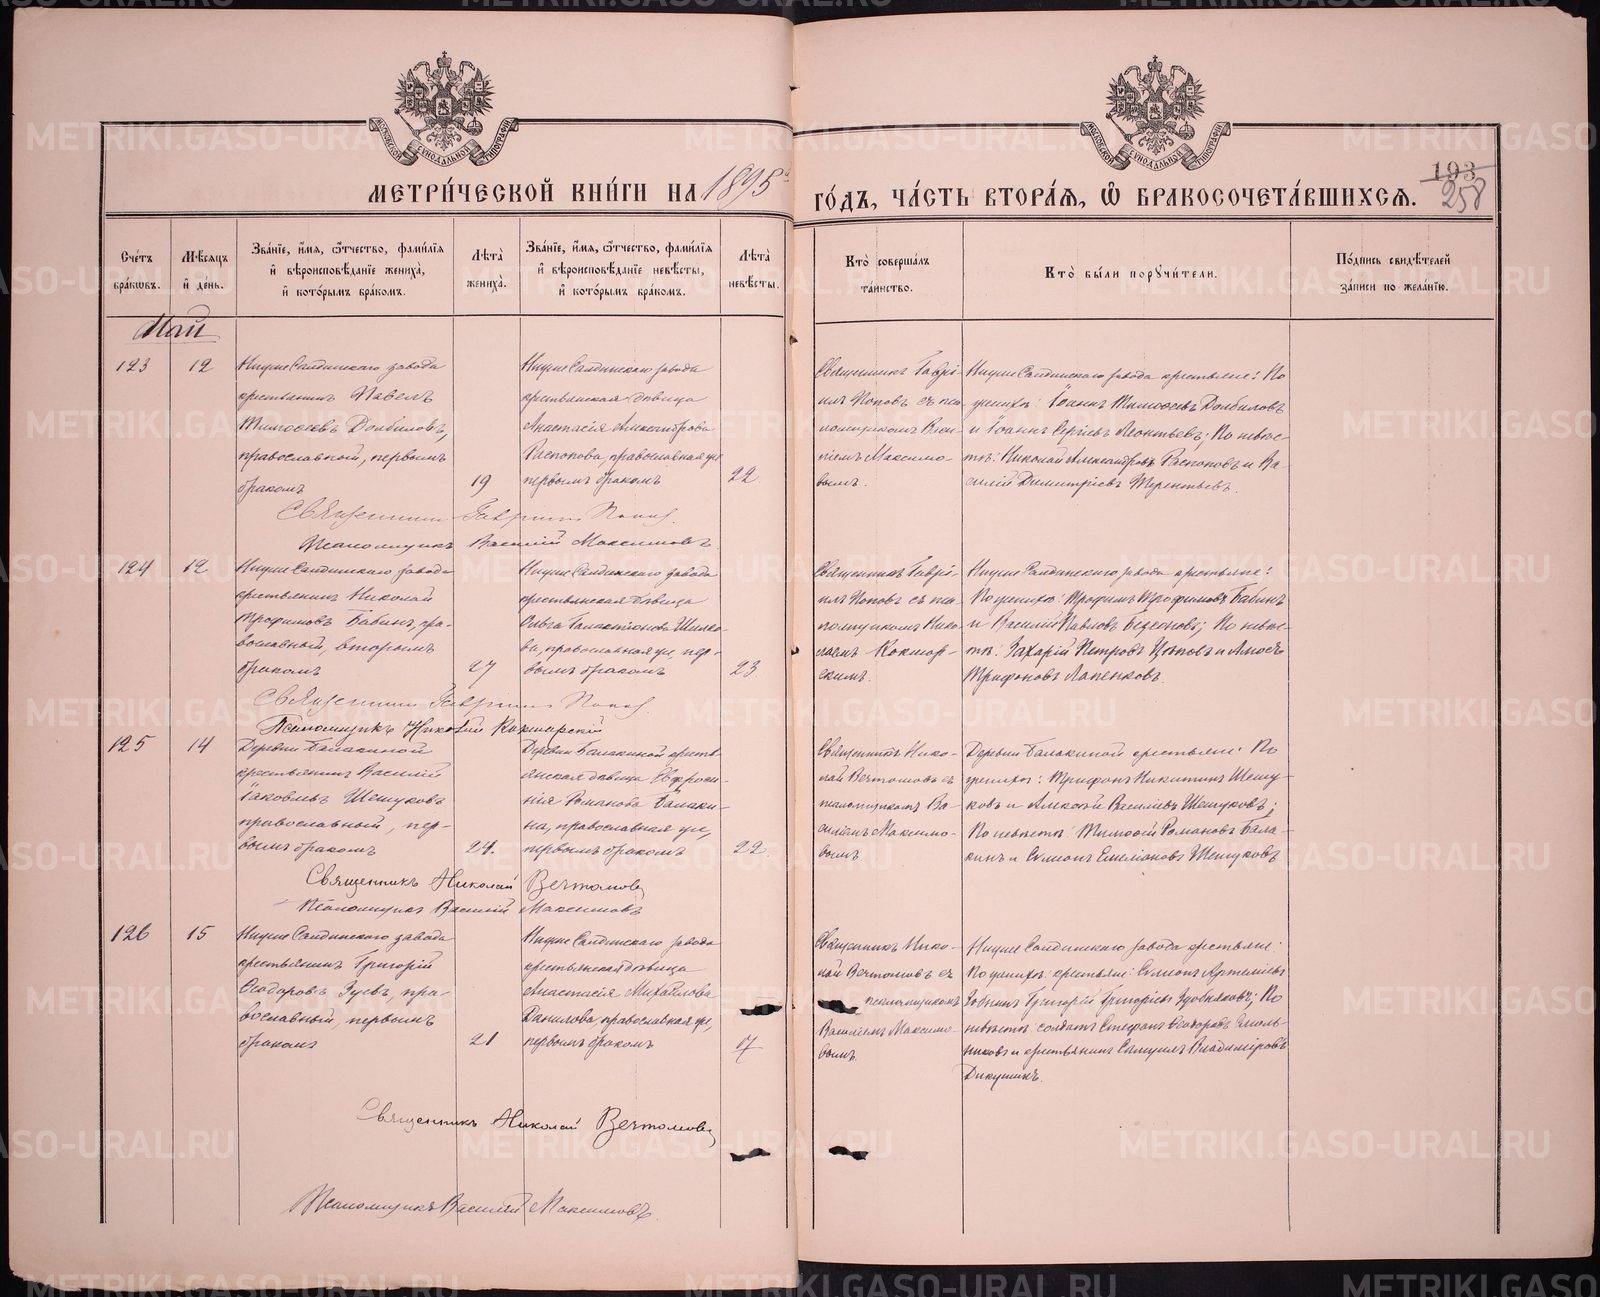 МЕТРИ́ЧЕСКОЙ КНИ́ГИ НА 1895 ГО́ДЪ, ЧА́СТЬ ВТОРА́Я, Ѿ БРАКОСОЧЕТА́ВШИХСЯ.
193
258
Сче́тъ бра́кѡвъ.
Мѣ́сяцъ и҆ де́нь.
Зва́нїе, и҆́мя, ѻ҆́тчество, фами́лїя и҆ вѣроисповѣ́данїе жениха̀, и҆ кото́рымъ бра́комъ.
Лѣта̀ жениха̀.
Зва́нїе, и҆́мя, ѻ҆́тчество, фами́лїя и҆ вѣроисповѣ́данїе невѣ́сты, и҆ кото́рымъ бра́комъ.
Лѣта̀ невѣ́сты.
Кто̀ соверша́лъ та́инство.
Кто̀ бы́ли порꙋчи́тели.
По́дпись свидѣ́телей за́писи по жела́нїю.
Май
123
12
Нижне Салдинскаго завода
крестьянинъ Павелъ
Тимоѳеевъ Долбиловъ,
православный, первымъ
бракомъ
19
Нижне Салдинскаго завода
крестьянская дѣвица
Анастасія Александрова
Распопова, православная же
первымъ бракомъ
22
Священникъ Гаврі-
илъ Поповъ съ пса-
ломщикомъ Васи-
ліемъ Максимо-
вымъ.
Нижне Салдинскаго завода крестьяне: По
женихѣ: Іоаннъ Тимоѳеевъ Долбиловъ
и Іоаннъ Сергіевъ Леонтьевъ; По невѣс-
тѣ: Николай Александровъ Распоповъ и Ва-
силій Димитріевъ Терентьевъ.
Священникъ Гавріилъ Поповъ.
Псаломщикъ Василій Максимовъ
124
12
Нижне Салдинскаго завода
крестьянинъ Николай
Трофимовъ Бабинъ, пра-
вославный, вторымъ
бракомъ
27
Нижне Салдинскаго завода
крестьянская дѣвица
Ольга Галактіонова
православная же, пер-
вымъ бракомъ
23
Священникъ Гаврі-
илъ Поповъ съ пса-
ломщикомъ Нико-
лаемъ Кокшар-
скимъ.
Нижне Салдинскаго завода крестьяне:
По женихѣ: Трофимъ Трофимовъ Бабинъ
и Василій Павловъ; По невѣс-
тѣ: Захарій Петровъ Цѣповъ и Амосъ
Трифоновъ Лапенковъ.
Священникъ Гавріилъ Поповъ.
Псаломщикъ Николай Кокшарскій
125
14
Деревни Балакиной
крестьянинъ Василій
Іаковлевъ Шешуковъ
православный, пер-
вымъ бракомъ
24.
Деревни Балакиной кресть-
янская дѣвица Евфроси-
нія Романова Балаки-
на, православная же,
первымъ бракомъ
22.
Священникъ Нико-
лай Вечтомовъ съ
псаломщикомъ Ва-
силіемъ Максимо-
вымъ.
Деревни Балакиной крестьяне: По
женихѣ: Трифонъ Никитинъ Шешу-
ковъ и Алексій Василіевъ Шешуковъ;
По невѣстѣ: Тимоѳей Романовъ Бала-
кинъ и Сѵмеонъ Емеліановъ Шешуковъ
Священникъ Николай Вечтомовъ
Псаломщикъ Василій Максимовъ
126
15
Нижне Салдинскаго завода
крестьянинъ Григорій
Ѳеодоровъ Зуевъ, пра-
вославный, первымъ
бракомъ
21
Нижне Салдинскаго завода
крестьянская дѣвица
Анастасія Михайлова
Данилова, православная же,
первымъ бракомъ
17
Священникъ Нико-
лай Вечтомовъ съ
псаломщикомъ
Василіемъ Максимо-
вымъ.
Нижне Салдинскаго завода крестьяне:
По женихѣ: крестьяне: Сѵмеонъ Артеміевъ
Зовнинъ Григорій Григоріевъ; По
невѣстѣ: солдатъ Стефанъ Ѳеодоровъ
и крестьянинъ Самуилъ Владиміровъ
Дикушинъ.
Священникъ Николай Вечтомовъ
Псаломщикъ Василій Максимовъ.
METRIKI.GASO-URAL.RU